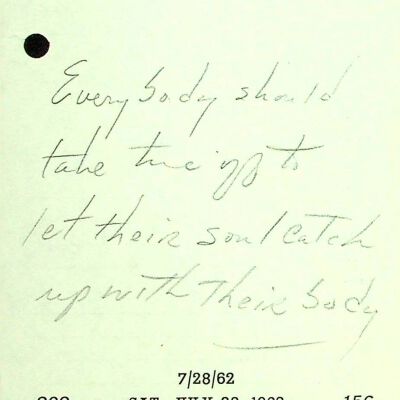 Everybody should
take time off to
let their soul catch
up with their body
7/28/62
SAT. JULY 28 1962